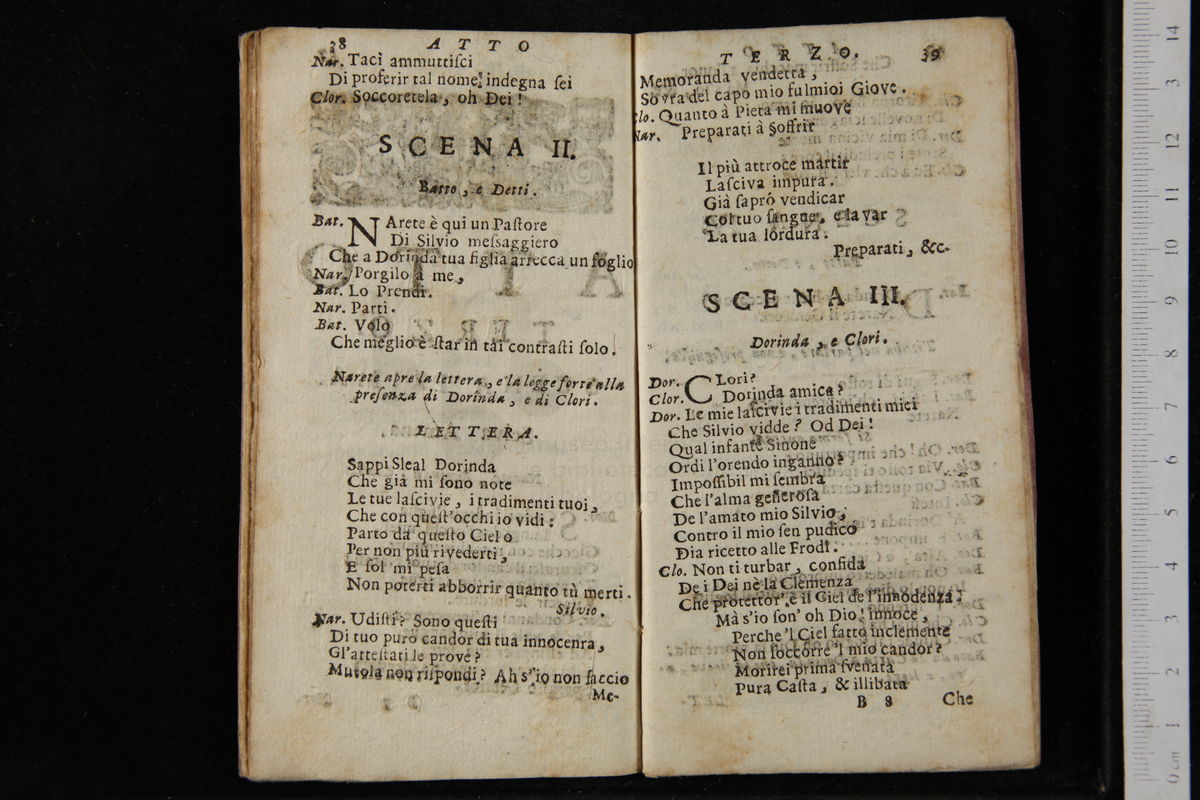 38 ATTO
Nar. Taci ammuttiſci
Di proferir tal nome, indegna ſei
Clor. Soccoretela, oh Dei!
SCENA II.
Batto, e Detti.
Bat. NArete è qui un Paſtore
Di Silvio meſsaggiero
Che a Dorinda tua figlia arrecca un foglio
Nar. Porgilo à me,
Bat. Lo Prendi.
Nar. Parti.
Bat. Volo
Che meglio è ſtar in tai contraſti ſolo.
Narete apre la lettera, e la legge forte alla
preſenza di Dorinda, e di Clori.
LETTERA.
Sappi Sleal Dorinda
Che già mi ſono note
Le tue laſcivie, i tradimenti tuoi,
Che con queſt'occhi io vidi:
Parto da queſto Cielo
Per non più rivederti,
E ſol mi peſa
Non poterti abborrir quanto tù merti.
Silvio.
Nar. Udiſti? Sono queſti
Di tuo puro candor di tua innocenra,
Gl'atteſtati le prove?
Mutola non riſpondi? Ah s'io non faccio
Me-
TERZO. 39
Memoranda vendetta,
Sovra del capo mio fulmioi Giove.
Clo. Quanto à Pietà mi muove
Nar. Preparati à ſoffrir
Il più attroce martir
Laſciva impura.
Già ſaprò vendicar
Col tuo ſangue, e lavar
La tua lordura.
Preparati, &c.
SCENA III.
Dorinda, e Clori.
Dor. CLori?
Clor. Dorinda amica?
Dor. Le mie laſcivie i tradimenti miei
Che Silvio vidde? Od Dei!
Qual infante Sinone
Ordi l'orendo inganno?
Impoſſibil mi ſembra
Che l'alma generoſa
De l'amato mio Silvio,
Contro il mio ſen pudico
Dia ricetto alle Frodi.
Clo. Non ti turbar, confida
De i Dei nè la Clemenza
Che protettor' è il Ciel de l'innodenza.
Mà s'io ſon' oh Dio! innoce,
Perche 'l Ciel fatto inclemente
Non ſoccorre 'l mio candor?
Morirei prima ſvenata
Pura Caſta, & illibata
B 8 Che
14
3
12
11
10
9
8
7
6
5
4
3
2
1
0 cm